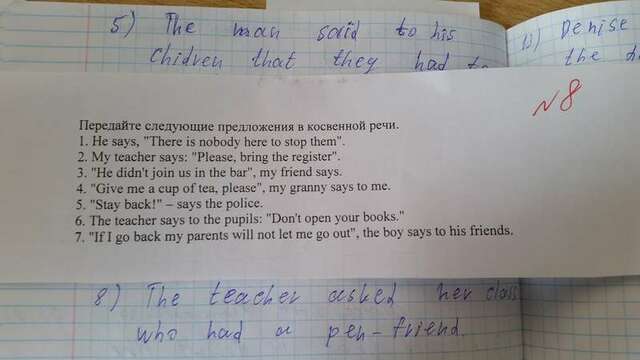 5) The man said to his
chidren that they had to
11) Denise
the
№8
Передайте следующие предложения в косвенной речи.
1. He says, "There is nobody here to stop them".
2. My teacher says: "Please, bring the register".
3. "He didn't join us in the bar", my friend says.
4. "Give me a cup of tea, please", my granny says to me.
5. "Stay back!" – says the police.
6. The teacher says to the pupils: "Don't open your books."
7. "If I go back my parents will not let me go out", the boy says to his friends.
8) The teacher asked her class
who had a pen-friend.